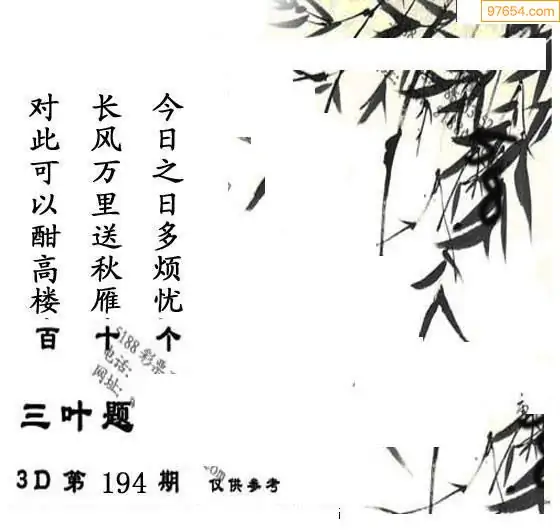 97654.com
今日之日多烦忧
长风万里送秋雁
对此可以酣高楼
百 十 个
5188 彩票
电话:
网址:
三叶题
3D 第 194 期 仅供参考